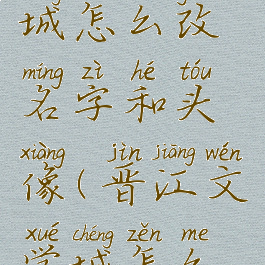 城怎么改
míng zì hé tóu
名字和头
xiàng jìn jiāng wén
像(晋江文
xué chéng zěn me
学城怎么